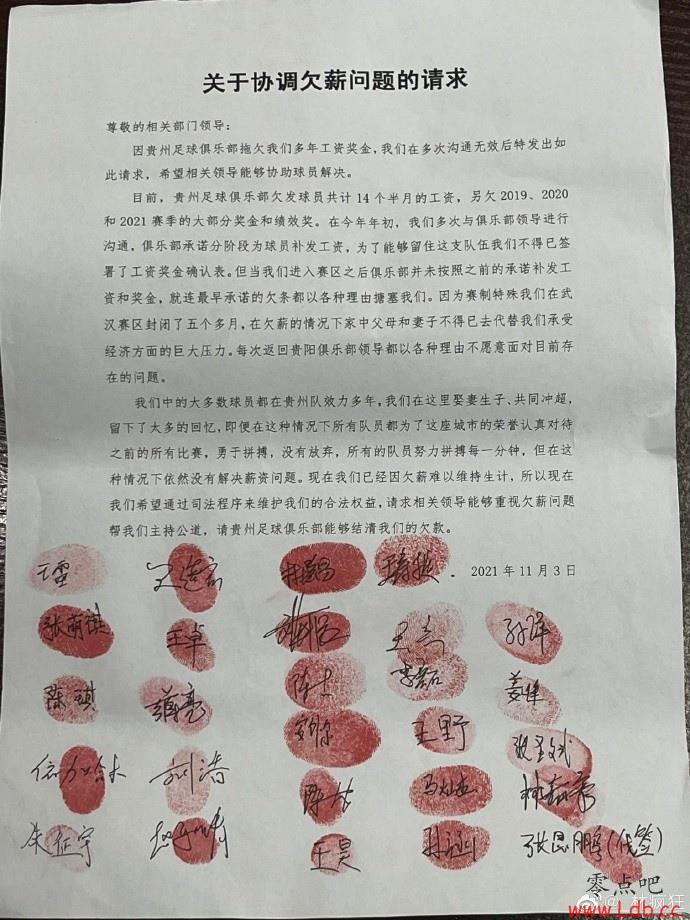 关于协调欠薪问题的请求
尊敬的相关部门领导：
因贵州足球俱乐部拖欠我们多年工资奖金，我们在多次沟通无效后特发出如
此请求，希望相关领导能够协助球员解决。
目前，贵州足球俱乐部欠发球员共计 14 个半月的工资，另欠 2019、2020
和 2021 赛季的大部分奖金和绩效奖。在今年年初，我们多次与俱乐部领导进行
沟通，俱乐部承诺分阶段为球员补发工资，为了能够留住这支队伍我们不得已签
署了工资奖金确认表。但当我们进入赛区之后俱乐部并未按照之前的承诺补发工
资和奖金，就连最早承诺的欠条都以各种理由搪塞我们。因为赛制特殊我们在武
汉赛区封闭了五个多月，在欠薪的情况下家中父母和妻子不得已去代替我们承受
经济方面的巨大压力。每次返回贵阳俱乐部领导都以各种理由不愿意面对目前存
在的问题。
我们中的大多数球员都在贵州队效力多年，我们在这里娶妻生子、共同冲超，
留下了太多的回忆，即便在这种情况下所有队员都为了这座城市的荣誉认真对待
之前的所有比赛，勇于拼搏，没有放弃，所有的队员努力拼搏每一分钟，但在这
种情况下依然没有解决薪资问题。现在我们已经因欠薪难以维持生计，所以现在
我们希望通过司法程序来维护我们的合法权益，请求相关领导能够重视欠薪问题
帮我们主持公道，请贵州足球俱乐部能够结清我们的欠款。
2021 年 11 月 3 日
张萌琪 王卓
陈琪 蒋亮
王野
刘涛
朱征宇 王昊 张昆鹏(代签)
零点吧
www.Ldb.cc